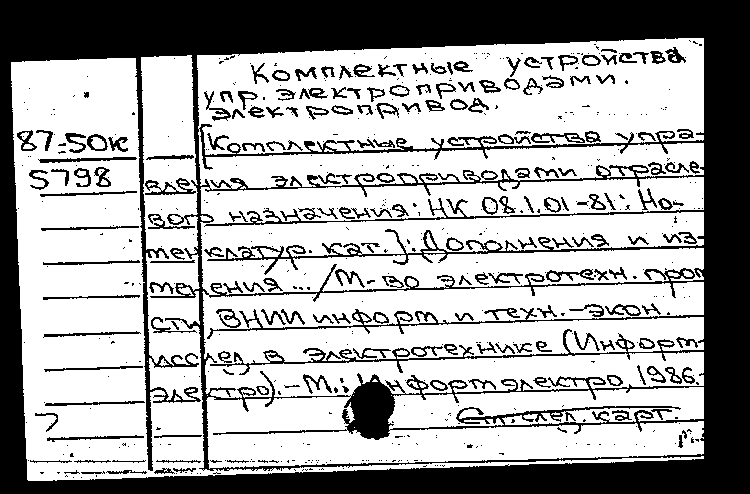 Комплектные устройства
упр. электроприводами.
Электропривод.
87-50к [Комплектные устройства упра-
5798 вления электроприводами отрасле-
вого назначения: НК 08.1.01-81: Но-
менклатур. кат.]: Дополнения и из-
менения ... / М-во электротехн. пром
сти, ВНИИ информ. и техн.-экон.
исслед. в электротехнике (Информ-
электро). - М.: Информэлектро, 1986.-
См. след. карт.